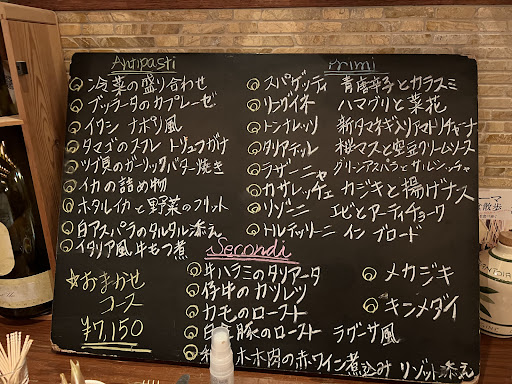 Antipasti
冷菜の盛り合わせ
ブッラータのカプレーゼ
イワシ ナポリ風
タマゴのスフレ トリュフがけ
ツブ貝のガーリックバター焼き
イカの詰め物
ホタルイカと野菜のフリット
白アスパラのタルタル添え
イタリア風牛もつ煮
Primi
スパゲッティ 青唐辛子とカラスミ
リングイネ ハマグリと菜花
トンナレッリ 新タマネギ入りアマトリチャーナ
タリアテッレ 桜マスと空豆クリームソース
ラザーニャ グリーンアスパラとサルシッチャ
カサレッチェ カジキと揚げナス
リゾーニ エビとアーティチョーク
トルテッリーニ イン ブロード
Secondi
牛ハラミのタリアータ
仔牛のカツレツ
カモのロースト
白金豚のロースト ラグーサ風
ホホ肉の赤ワイン煮込み リゾット添え
メカジキ
キンメダイ
☆おまかせ
コース
¥7,150